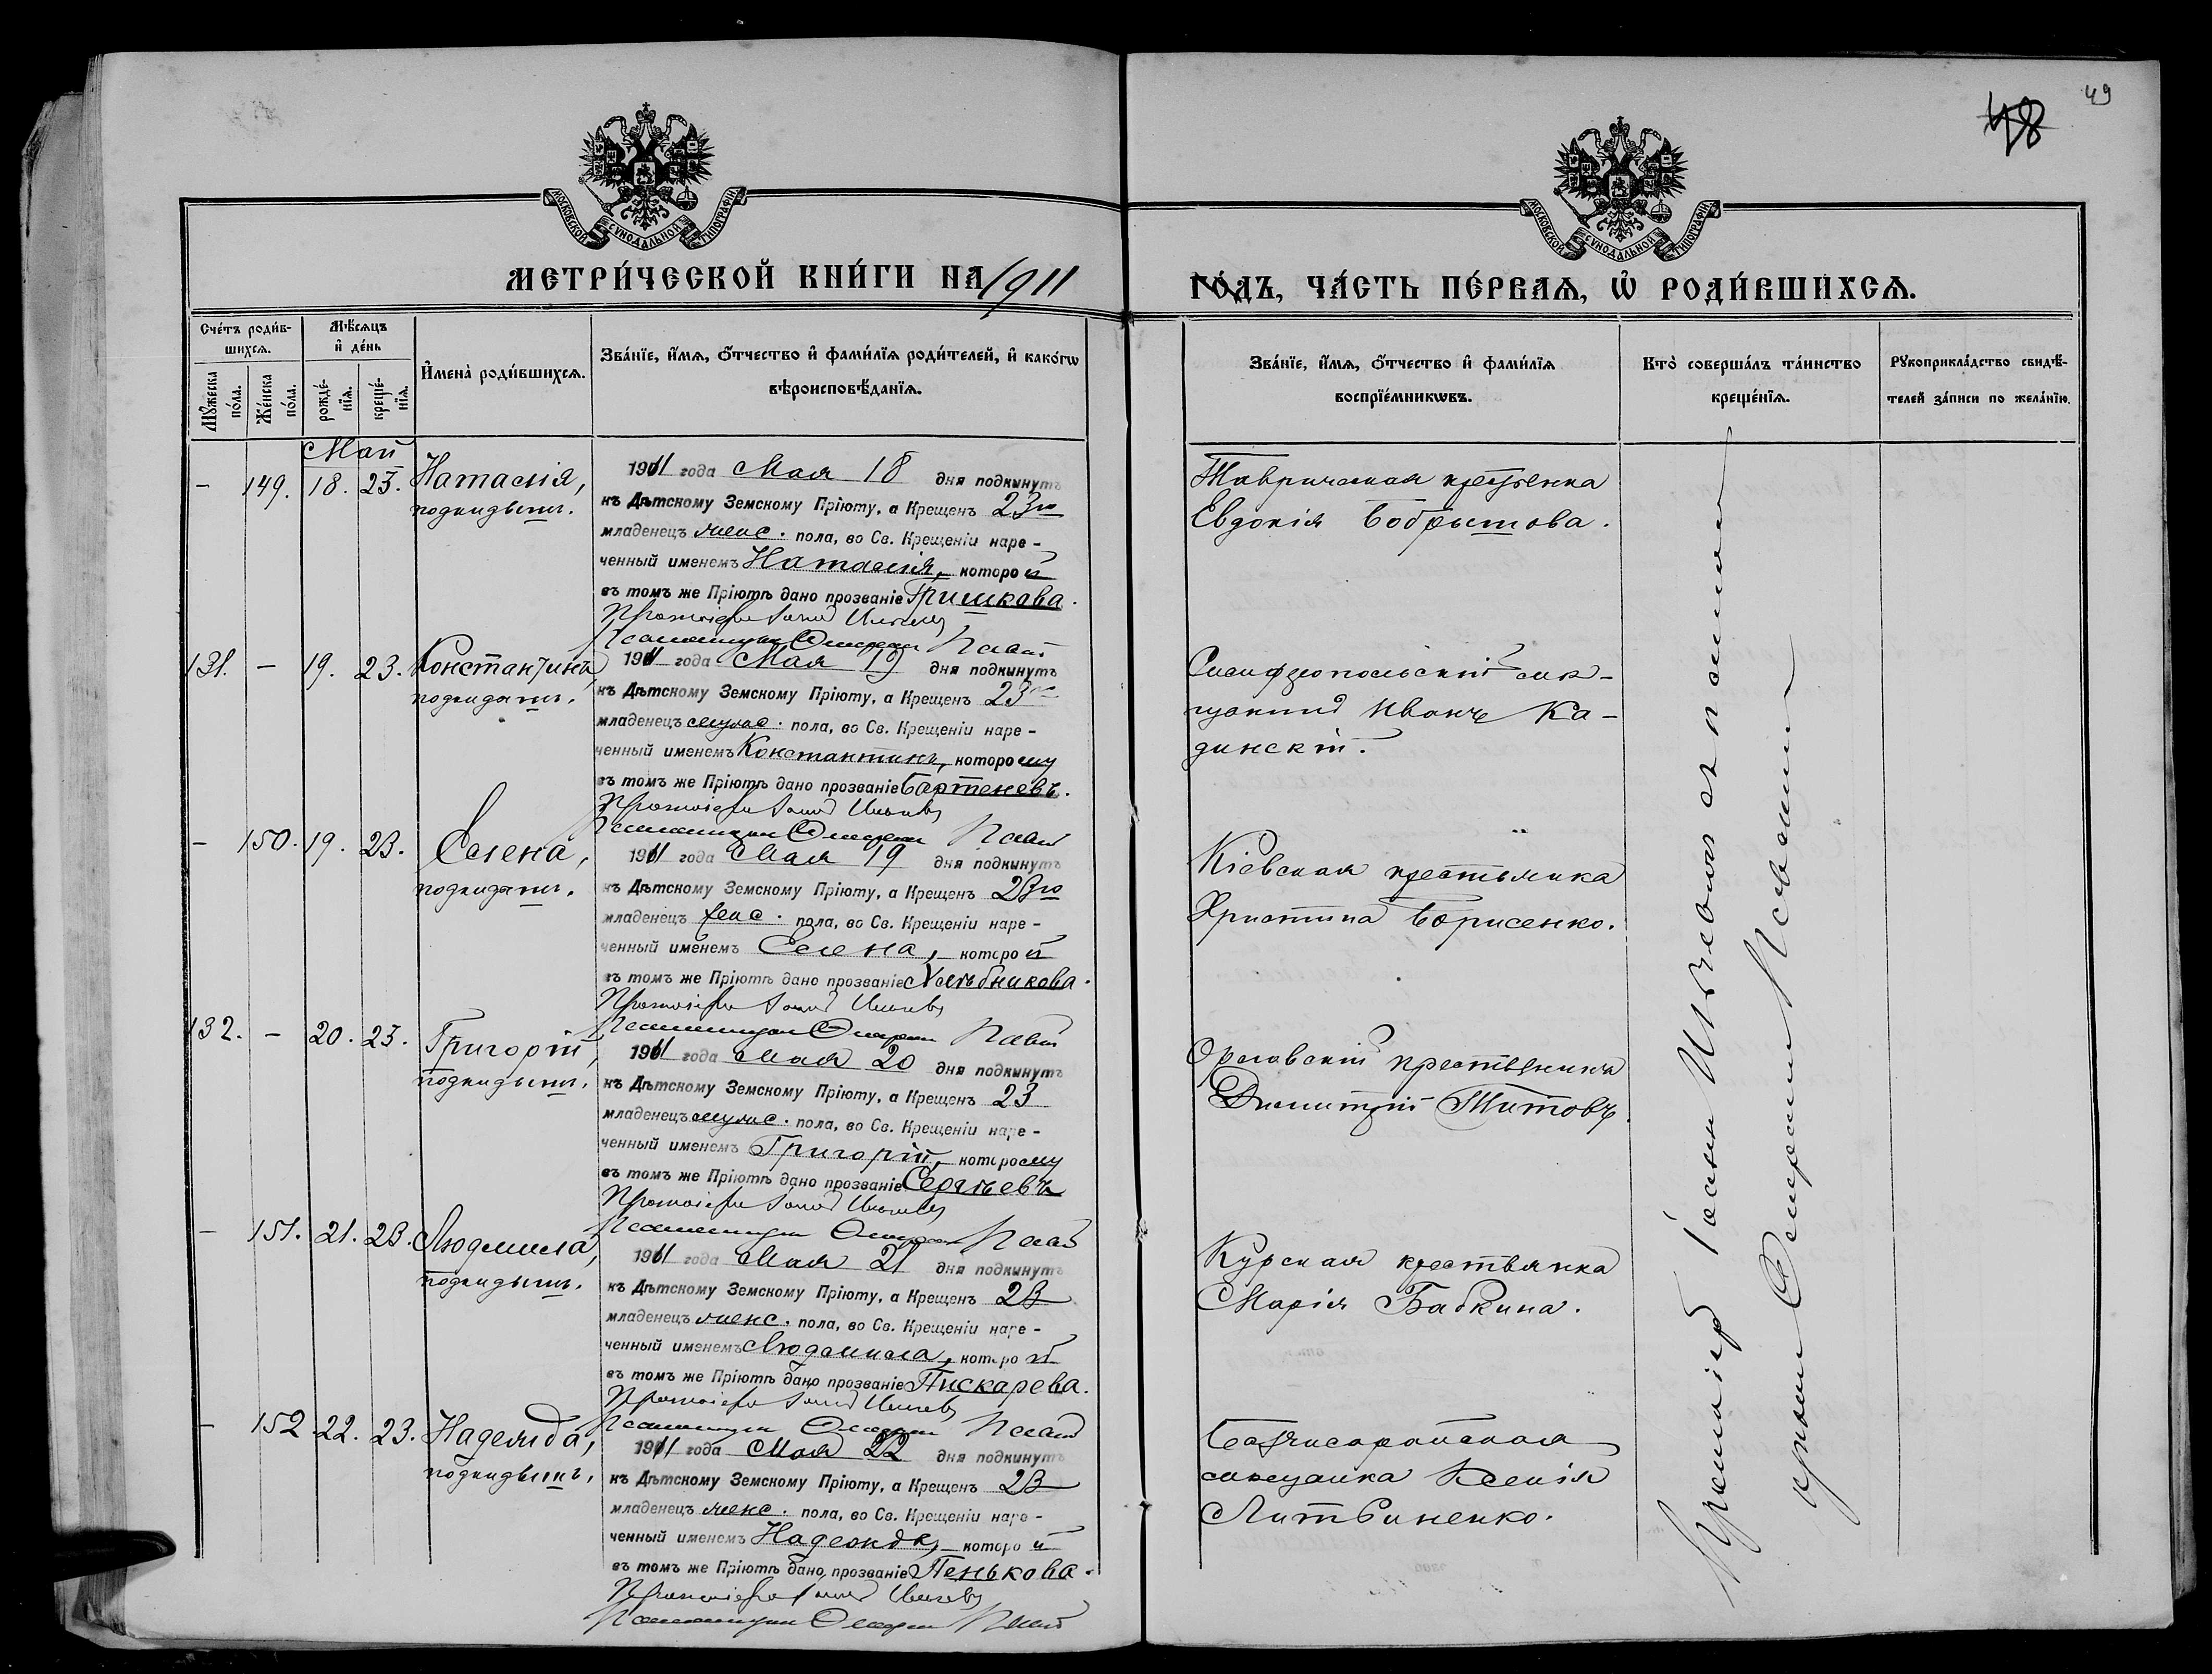 49
48
МОСКОВСКОЙ СѴНОДАЛЬНОЙ ТИПОГРАФІИ
МОСКОВСКОЙ СѴНОДАЛЬНОЙ ТИПОГРАФІИ
МЕТРИ́ЧЕСКОЙ КНИ́ГИ НА 1911
ГО́ДЪ, ЧА́СТЬ ПЕ́РВАѦ, Ѡ҆ РОДИ́ВШИХСѦ.
Сче́тъ роди́в-
шихсѧ.
Мꙋ́жеска по́ла.
Же́нска по́ла.
Мѣ́сѧцъ и҆ де́нь
рожде́-
нїѧ.
креще́-
нїѧ.
И҆мена̀ роди́вшихсѧ.
Зва́нїе, и҆́мѧ, ѻ҆́тчество и҆ фами́лїѧ роди́телей, и҆ како́гѡ
вѣроисповѣ́данїѧ.
Зва́нїе, и҆́мѧ, ѻ҆́тчество и҆ фами́лїѧ
воспрїе́мникѡвъ.
Кто̀ соверша́лъ та́инство
креще́нїѧ.
Рꙋкоприкла́дство свидѣ́-
телей за́писи по жела́нїю.
Май
– 149. 18. 23. Наталія,
подкидышъ.
1911 года Мая 18 дня подкинутъ
къ Дѣтскому Земскому Пріюту, а Крещенъ 23го
младенецъ женс. пола, во Св. Крещеніи наре-
ченный именемъ Наталія, которой
въ томъ же Пріютѣ дано прозваніе Гришкова.
Протоіерей
Псаломщикъ
Таврическая крестьянка
Евдокія Бобрышова.
131. – 19. 23. Константинъ
подкидышъ.
1911 года Мая 19 дня подкинутъ
къ Дѣтскому Земскому Пріюту, а Крещенъ 23го
младенецъ мужс. пола, во Св. Крещеніи наре-
ченный именемъ Константинъ, которому
въ томъ же Пріютѣ дано прозваніе Бартеневъ.
Протоіерей
Псаломщикъ
Симферопольскій мѣ-
щанинъ Иванъ Ка-
динскій.
– 150. 19. 23. Елена,
подкидышъ.
1911 года Мая 19 дня подкинутъ
къ Дѣтскому Земскому Пріюту, а Крещенъ 23го
младенецъ женс. пола, во Св. Крещеніи наре-
ченный именемъ Елена, которой
въ томъ же Пріютѣ дано прозваніе Хлѣбникова.
Протоіерей
Псаломщикъ
Кіевская крестьянка
Христина Борисенко.
132. – 20. 23. Григорій,
подкидышъ.
1911 года Мая 20 дня подкинутъ
къ Дѣтскому Земскому Пріюту, а Крещенъ 23
младенецъ мужс. пола, во Св. Крещеніи наре-
ченный именемъ Григорій, которому
въ томъ же Пріютѣ дано прозваніе Сергѣевъ
Протоіерей
Псаломщикъ
Орловскій крестьянинъ
Димитрій Титовъ.
– 151. 21. 23. Людмила,
подкидышъ.
1911 года Мая 21 дня подкинутъ
къ Дѣтскому Земскому Пріюту, а Крещенъ 23
младенецъ женс. пола, во Св. Крещеніи наре-
ченный именемъ Людмила, которой
въ томъ же Пріютѣ дано прозваніе Пискарева.
Протоіерей
Псаломщикъ
Курская крестьянка
Марія Бабкина.
– 152. 22. 23. Надежда,
подкидышъ.
1911 года Мая 22 дня подкинутъ
къ Дѣтскому Земскому Пріюту, а Крещенъ 23
младенецъ женс. пола, во Св. Крещеніи наре-
ченный именемъ Надежда, которой
въ томъ же Пріютѣ дано прозваніе Пенькова.
Протоіерей
Псаломщикъ
Бахчисарайская
мѣщанка Ксенія
Литвиненко.
Протоіерей Іоаннъ съ псаломщ